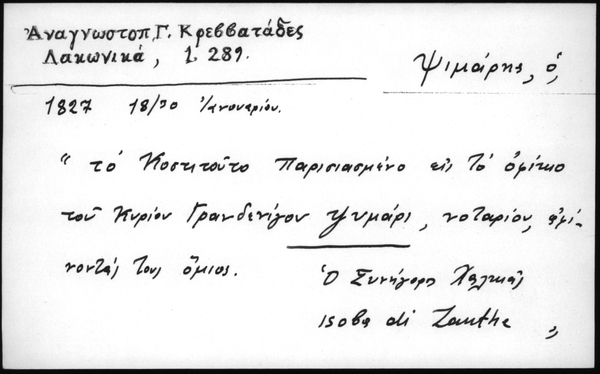 Ἀναγνωστοπ. Γ. Κρεββατάδες
Λακωνικά, 1. 289.
Ψιμάρης, ὁ,
1827 18/30 Ἰανουαρίου.
"τὸ Κοστιτοῦτο παρισιασμένο εἰς τὸ ὀμίτιο
τοῦ Κυρίου Γρανδενίγου Ψυμάρι, νοταρίου,
τους ὅμιος.
Ὁ Συνήγορος Χαλκιᾶς
isola di Zanthe "